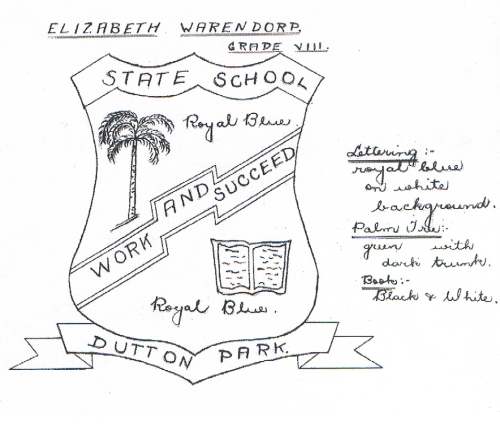 ELIZABETH WARENDORP.
GRADE VIII.
STATE SCHOOL
Royal Blue.
WORK AND SUCCEED
Royal Blue.
DUTTON PARK.
Lettering :-
royal blue
on white
background.
Palm Tree:-
green with
dark trunk.
Book:-
Black & White.